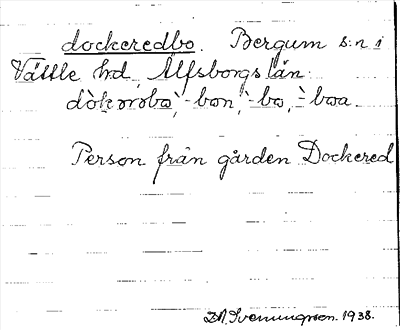 dockeredbo. Bergum s:n i
Vättle hd, Älfsborgs län.
dòkərəbo, `-bon, `-bo, `-boa.
Person från gården Dockered
1938.